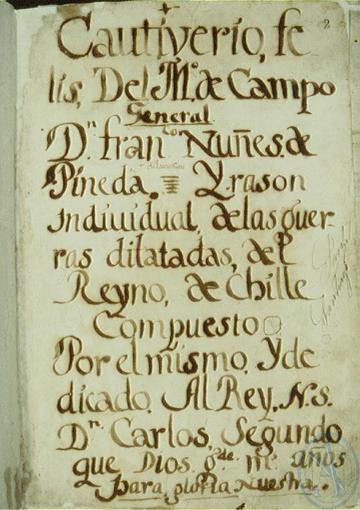 2
Cautiverio, fe
lis, Del Mº. de Campo
General
Dn. franco. Nuñes. de
Pineda. Y rason
Indiuidual, de las guer
ras dilatadas, del
Reyno, de Chille
Compuesto
Por el mismo, Y de
dicado. Al Rey. N. s.
Dn. Carlos, Segundo
que Dios. gde. ms. años
para, gloria Nuestra.